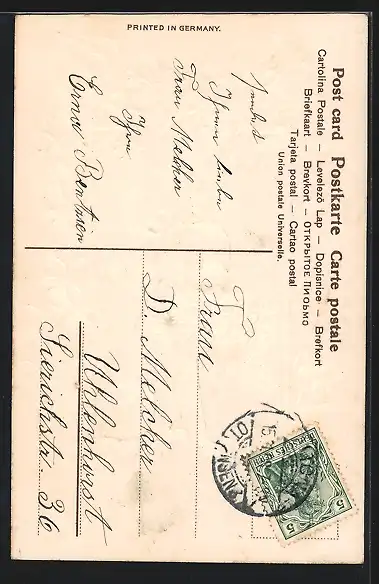 PRINTED IN GERMANY.
Post card Postkarte Carte postale
Cartolina Postale — Levelező Lap — Dopisnice — Brefkort
Briefkaart — Brevkort — ОТКРЫТОЕ ПИСЬМО
Tarjeta postal — Cartao postal
Union postale Universelle.
Frau Melcher
Ihre
Erna
Frau
D. Melcher
Uhlenhorst
Sierichstr. 36
DEUTSCHES REICH
5 5